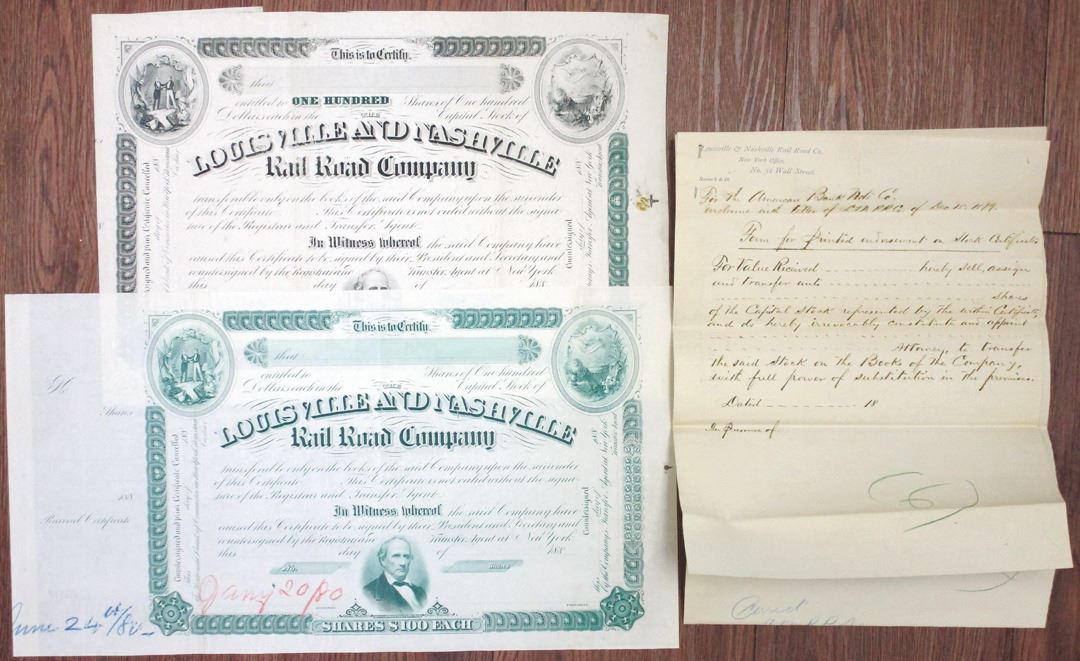 This is to Certify
that
entitled to ONE HUNDRED Shares of One hundred
Dollars each in the THE Capital Stock of
LOUISVILLE AND NASHVILLE
Rail Road Company
transferable only on the books of the said Company upon the surrender
of this Certificate. This Certificate is not valid without the signa-
ture of the Registrar and Transfer Agent.
In Witness whereof the said Company have
caused this Certificate to be signed by their President and Secretary and
countersigned by the Registrar and Transfer Agent at New York
this day of 188
Countersigned
This is to Certify
that
entitled to Shares of One hundred
Dollars each in the THE Capital Stock of
LOUISVILLE AND NASHVILLE
Rail Road Company
transferable only on the books of the said Company upon the surrender
of this Certificate. This Certificate is not valid without the signa-
ture of the Registrar and Transfer Agent.
In Witness whereof the said Company have
caused this Certificate to be signed by their President and Secretary and
countersigned by the Registrar and Transfer Agent at New York
this day of 188
No.
SHARES $100 EACH
Countersigned
Shares
188
Received Certificate
Jany 20/80
June 24th/80
Louisville & Nashville Rail Road Co.
New York Office,
No. 52 Wall Street.
For the American Bank Note Co.
Form for printed endorsement on Stock Certificate
For Value Received hereby sell, assign
and transfer unto
Shares
of the Capital Stock represented by the within Certificate
and do hereby irrevocably constitute and appoint
Attorney, to transfer
the said Stock on the Books of the Company,
with full power of substitution in the premises.
Dated 18
In Presence of
Correct